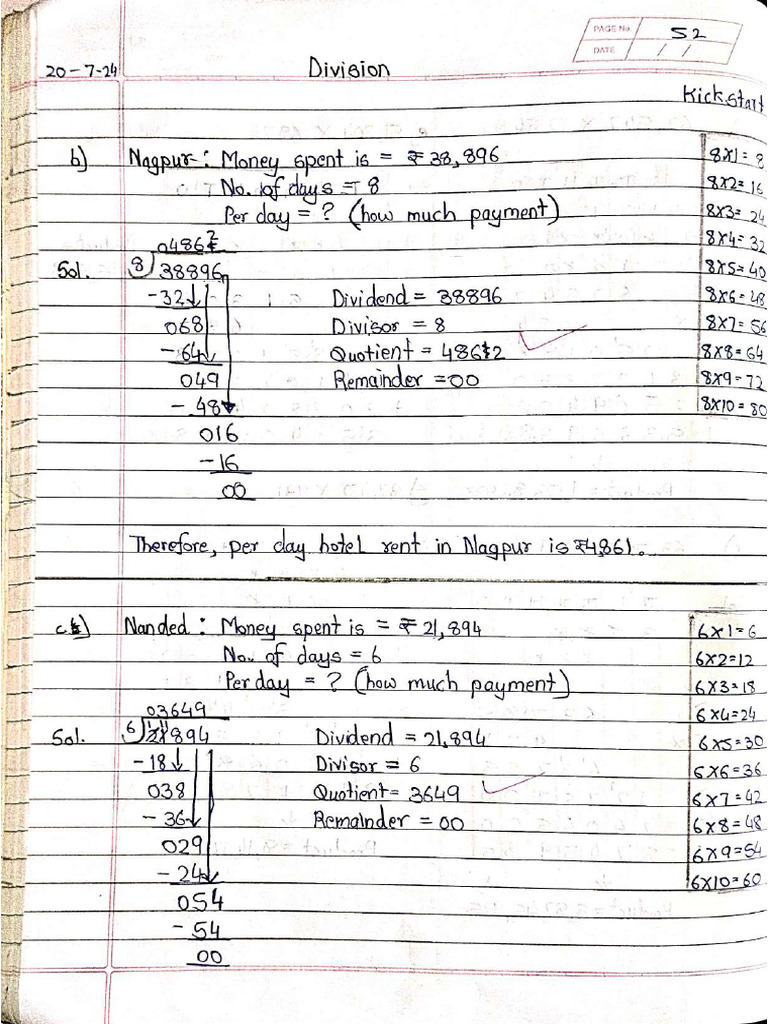 PAGE No. 52
DATE / /
20-7-24 Division
Kickstart
b) Nagpur: Money spent is = ₹38,896
No. of days = 8
Per day = ? (how much payment)
04862
Sol. 8)38896
-32
068
-64
049
-48
016
-16
00
Dividend = 38896
Divisor = 8
Quotient = 4862
Remainder = 00
8x1=8
8x2=16
8x3=24
8x4=32
8x5=40
8x6=48
8x7=56
8x8=64
8x9=72
8x10=80
Therefore, per day hotel rent in Nagpur is ₹4,861.
c) Nanded: Money spent is = ₹21,894
No. of days = 6
Per day = ? (how much payment)
03649
Sol. 6)21894
-18
038
-36
029
-24
054
-54
00
Dividend = 21,894
Divisor = 6
Quotient = 3649
Remainder = 00
6x1=6
6x2=12
6x3=18
6x4=24
6x5=30
6x6=36
6x7=42
6x8=48
6x9=54
6x10=60